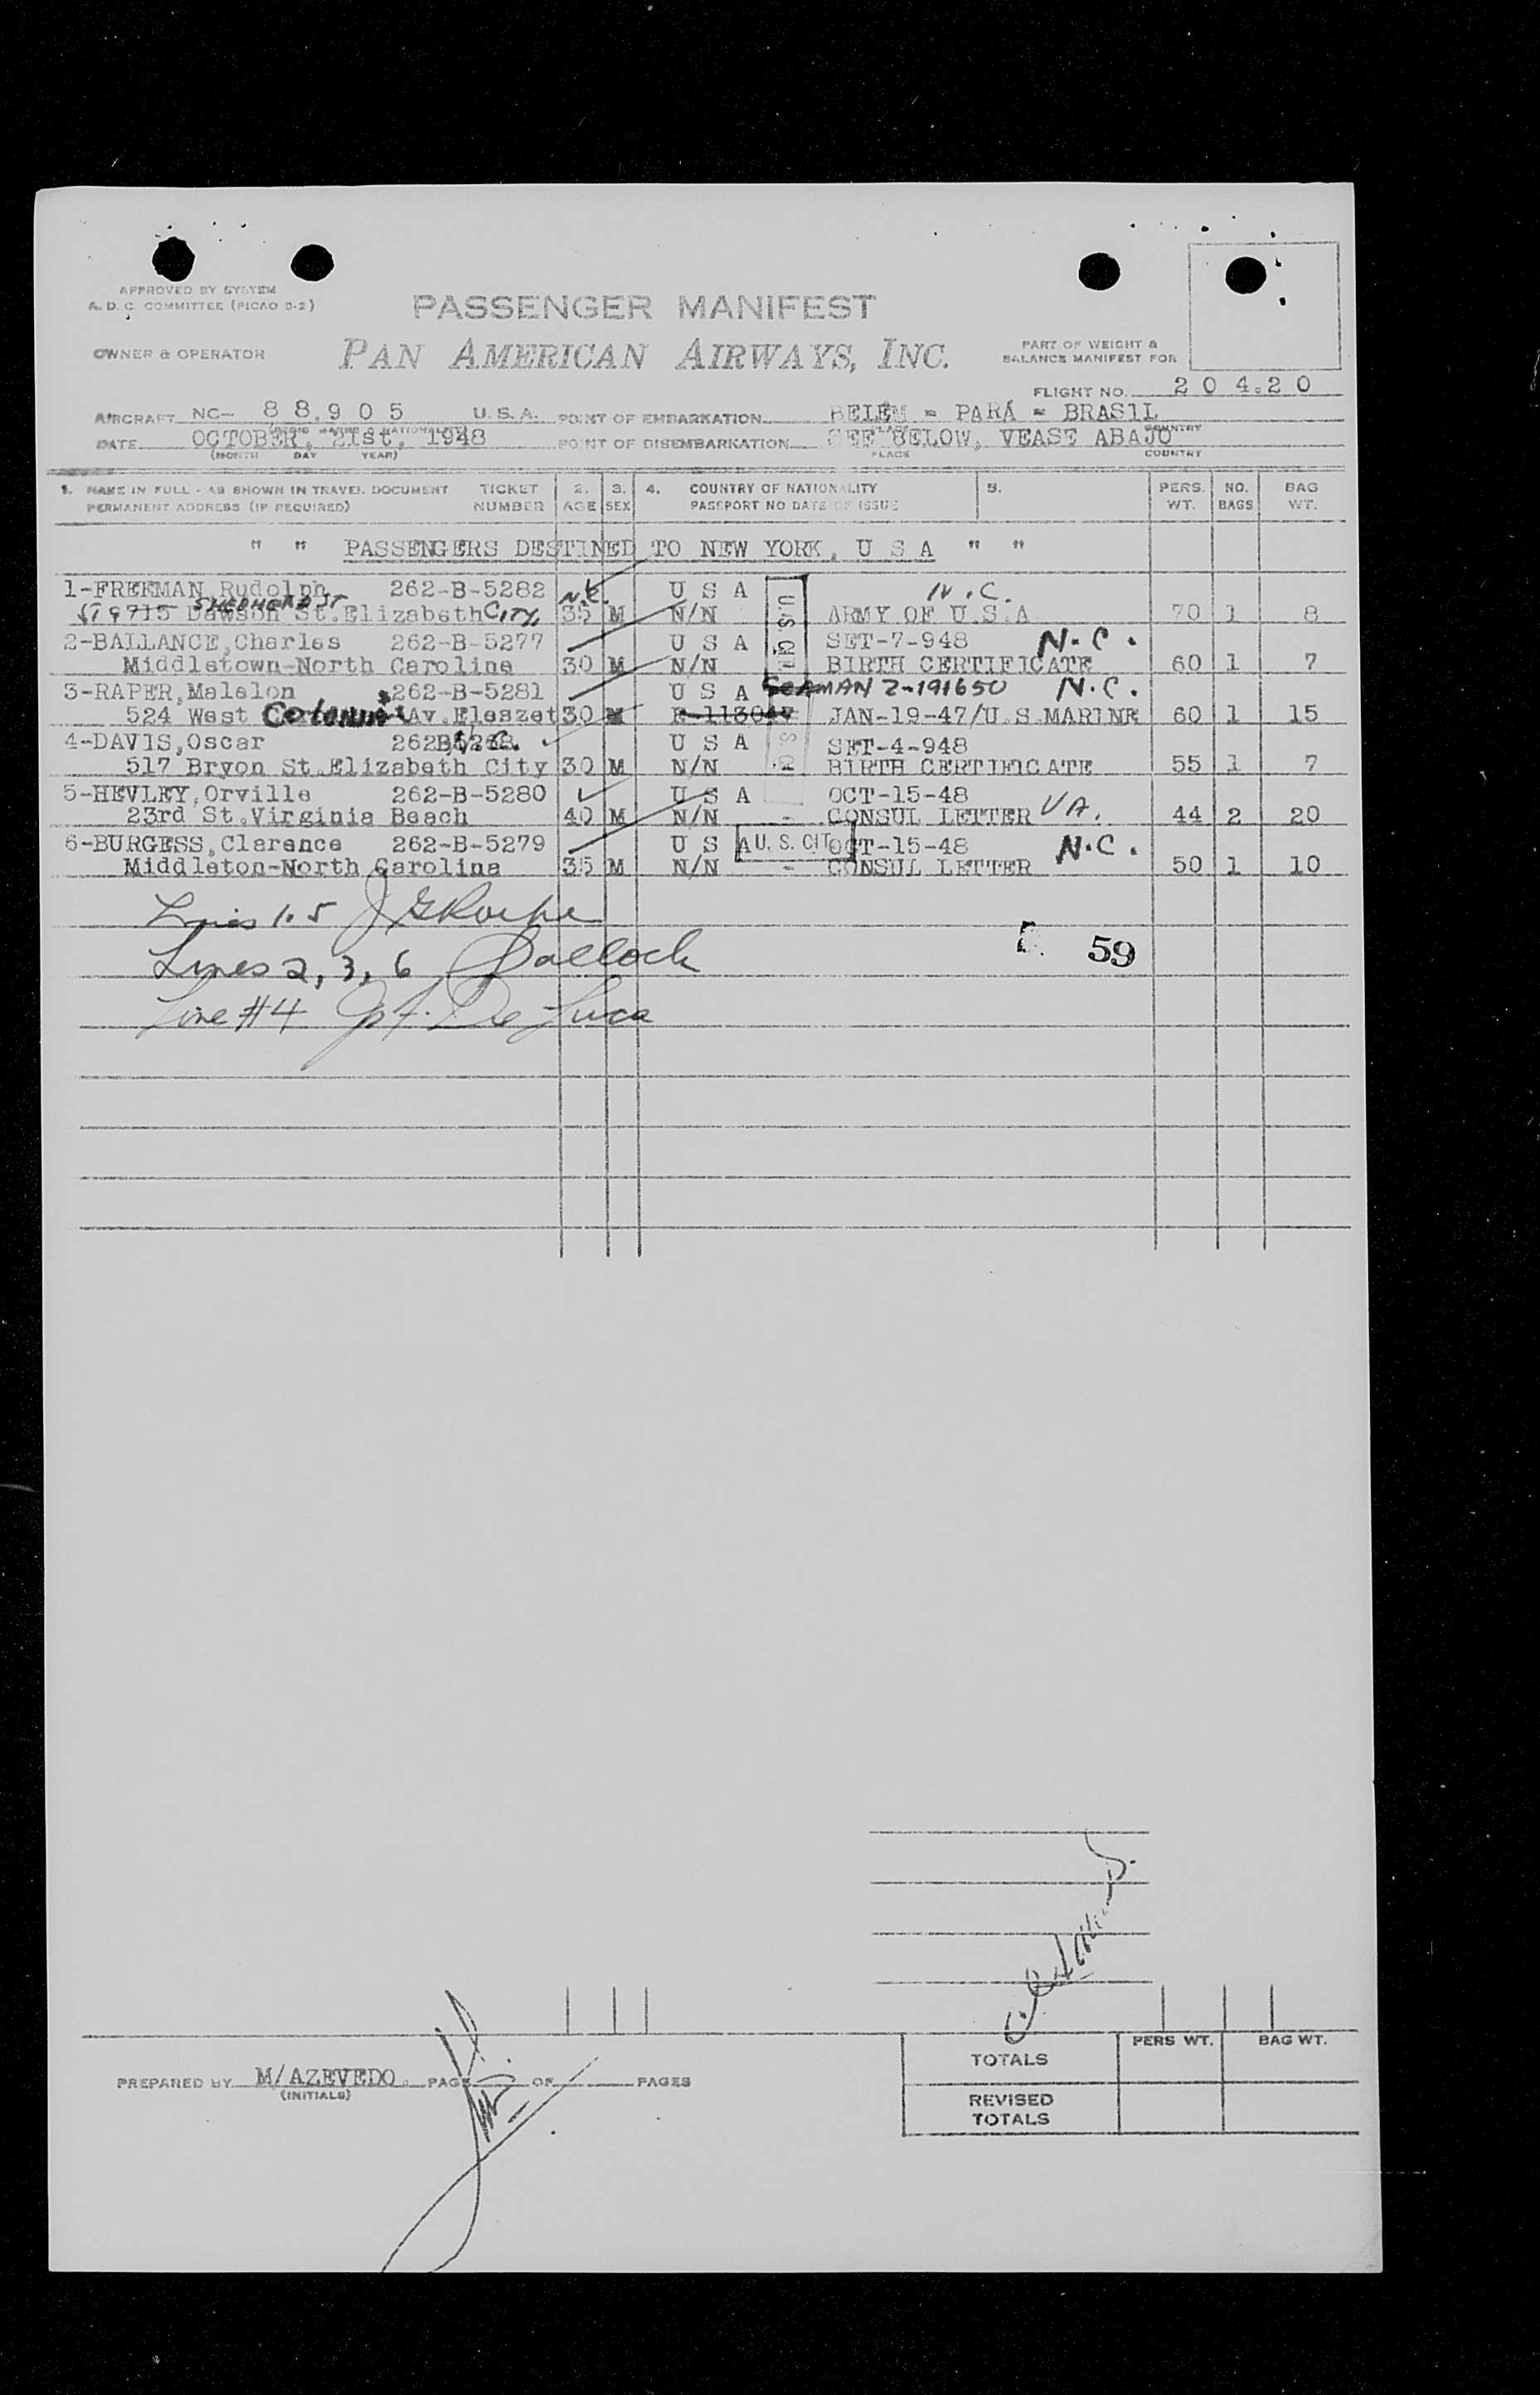 APPROVED BY SYSTEM
A. D. C. COMMITTEE (PICAO D-2)
PASSENGER MANIFEST
OWNER & OPERATOR PAN AMERICAN AIRWAYS, INC.
PART OF WEIGHT &
BALANCE MANIFEST FOR
FLIGHT NO. 2 0 4.2 0
AIRCRAFT NC- 8 8.9 0 5 U. S. A. POINT OF EMBARKATION BELÉM = PARÁ = BRASIL
DATE OCTOBER, 21st, 1948 POINT OF DISEMBARKATION SEE BELOW, VEASE ABAJO
(MONTH DAY YEAR) PLACE COUNTRY
1. NAME IN FULL - AS SHOWN IN TRAVEL DOCUMENT TICKET 2. 3. 4. COUNTRY OF NATIONALITY 5. PERS. NO. BAG
PERMANENT ADDRESS (IF REQUIRED) NUMBER AGE SEX PASSPORT NO DATE OF ISSUE WT. BAGS WT.
" " PASSENGERS DESTINED TO NEW YORK, U S A " "
1-FREEMAN, Rudolph 262-B-5282 N.C. U S A N.C.
715 Dawson SHEPHERD ST St. Elizabeth CITY, 35 M N/N ARMY OF U.S.A 70 1 8
2-BALLANCE, Charles 262-B-5277 U S A SET-7-948 N.C.
Middletown-North Carolina 30 M N/N BIRTH CERTIFICATE 60 1 7
3-RAPER, Malelon 262-B-5281 U S A SEAMAN Z-191650 N.C.
524 West Av. Eleszet 30 M JAN-19-47/U.S.MARINE 60 1 15
4-DAVIS, Oscar N.C. U S A SET-4-948
517 Bryon St. Elizabeth City 30 M N/N BIRTH CERTIFICATE 55 1 7
5-HEVLEY, Orville 262-B-5280 U S A OCT-15-48
23rd St. Virginia Beach 40 M N/N - CONSUL LETTER VA. 44 2 20
6-BURGESS, Clarence 262-B-5279 U S A U. S. CIT OCT-15-48 N.C.
Middleton-North Carolina 35 M N/N - CONSUL LETTER 50 1 10
Lines 1.5
Lines 2, 3, 6
59
Line #4 De Luca
PREPARED BY M/AZEVEDO. PAGE OF PAGES
(INITIALS)
PERS WT. BAG WT.
TOTALS
REVISED
TOTALS